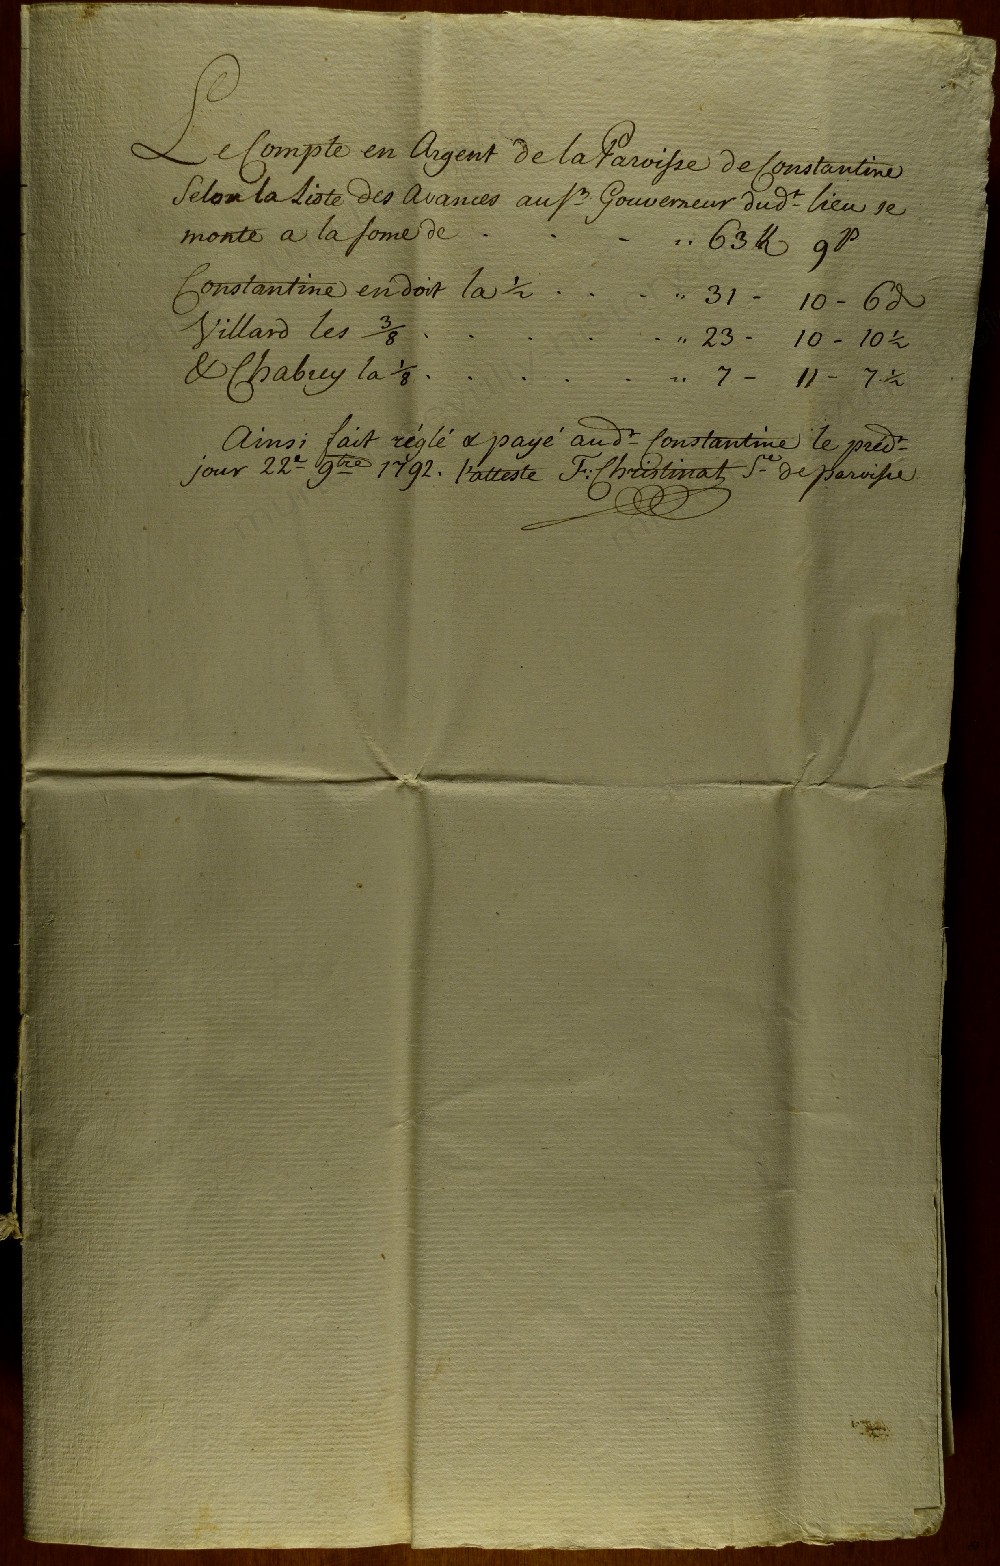 Le Compte en Argent de la Paroisse de Constantine
Selon la Liste des Avances au Sr. Gouverneur dudt. lieu se
monte a la some de . . . . ,, 63 ll 9 P
Constantine en doit la ½ . . . ,, 31 - 10 - 6 d
Villard les 3/8 . . . . . ,, 23 - 10 - 10 ½
& Chabrey la 1/8 . . . . . ,, 7 - 11 - 7 ½
Ainsi fait réglé & payé audt. Constantine le predt.
jour 22e. 9bre 1792. l'atteste F: Christinat Sre. de paroisse